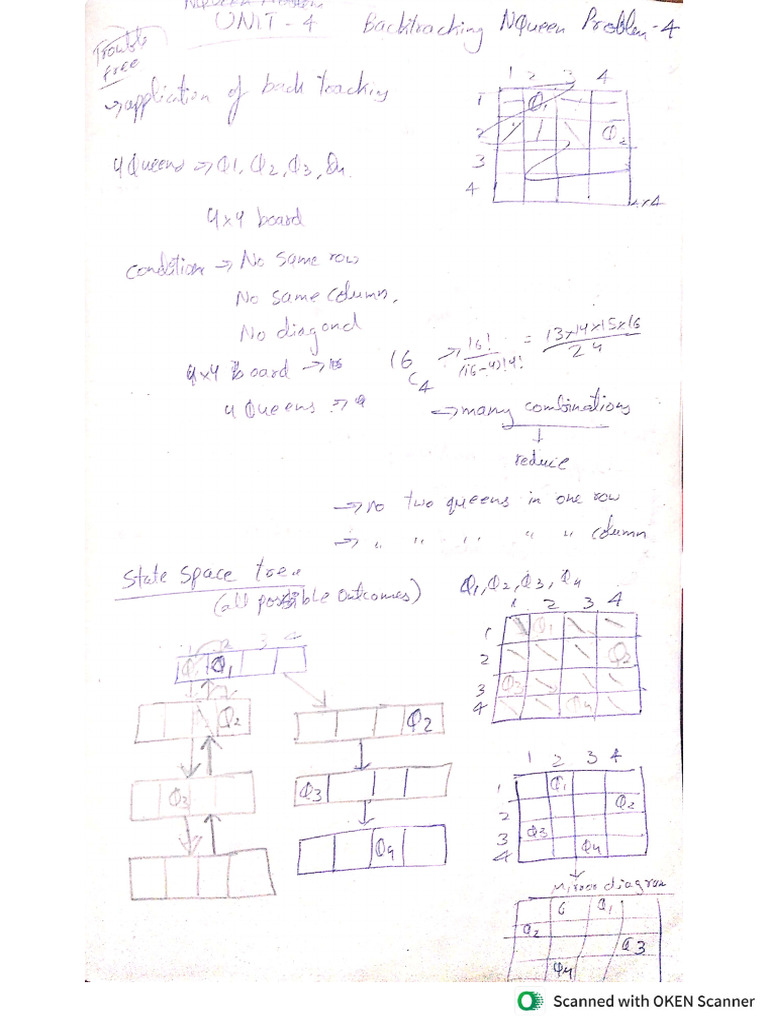 NQueen Problem
UNIT - 4 Backtracking NQueen Problem - 4
Trouble
Free
→ application of back tracking
1 2 3 4
1 Q1
2 Q2
3
4
4x4
4 Queens → Q1, Q2, Q3, Q4.
4x4 board
condition → No same row
No same column,
No diagonal
4x4 Board → 16
4 Queens → 4
16C4 → 16! / (16-4)! 4! = 13x14x15x16 / 24
→ many combinations
↓
reduce
→ no two queens in one row
→ " " " " " column
State Space tree
(all possible outcomes)
Q1, Q2, Q3, Q4
1 2 3 4
1 Q1
2 Q2
3 Q3
4 Q4
1 2 3 4
Q1
Q2
Q2
Q3
Q3
Q4
1 2 3 4
1 Q1
2 Q2
3 Q3
4 Q4
Mirror diagram
Q1
Q2
Q3
Q4
Scanned with OKEN Scanner